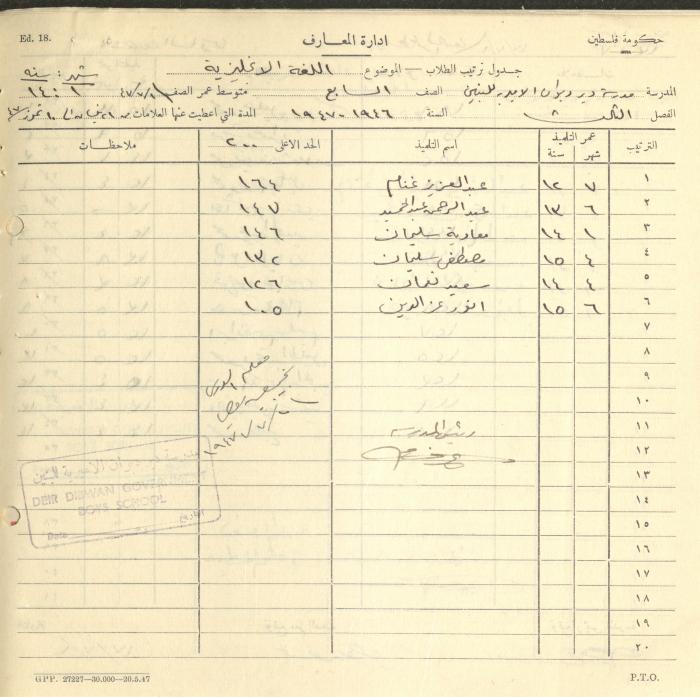 Ed. 18.
ادارة المعارف
حكومة فلسطين
جدول ترتيب الطلاب — الموضوع اللغة الانجليزية
شهر : سنه
المدرسة مدرسة دير ديوان الاميرية للبنين الصف السابع متوسط عمر الصف ١٤:١
الفصل الثالث السنة ١٩٤٦-١٩٤٧ المدة التي اعطيت عنها العلامات من
الترتيب عمر التلميذ شهر سنة اسم التلميذ الحد الاعلى ٢٠٠ ملاحظات
١ ٧ ١٢ عبد العزيز غنام ١٦٤
٢ ٦ ١٣ عبد الرحمن عبد الحميد ١٤٧
٣ ١ ١٤ معاوية سليمان ١٤٦
٤ ٤ ١٥ مصطفى سليمان ١٣٢
٥ ٤ ١٤ سعيد نعمان ١٢٦
٦ ٦ ١٥ انور عز الدين ١٠٥
٧
٨
٩
١٠
١١
١٢
١٣
١٤
١٥
١٦
١٧
١٨
١٩
٢٠
رئيس المدرسة
مدرسة دير ديوان الاميرية للبنين
DEIR DIBWAN GOVERNMENT
BOYS SCHOOL
Date التاريخ
GPP. 27227—30.000—20.5.47
P.T.O.